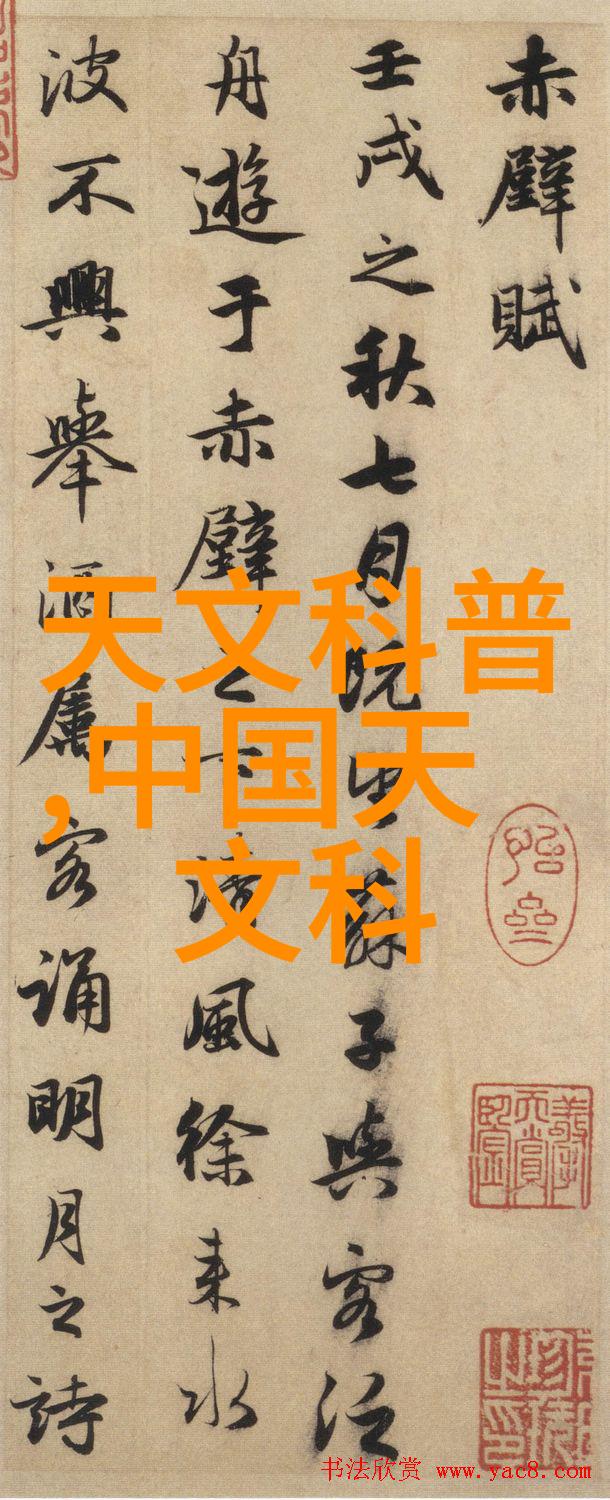 赤壁賦
壬戌之秋七月既望蘇子與客泛
舟遊于赤壁之下清風徐来水
波不興舉酒屬客誦明月之詩
天文科普
,中国天
文科
书法欣赏 www.yac8.com